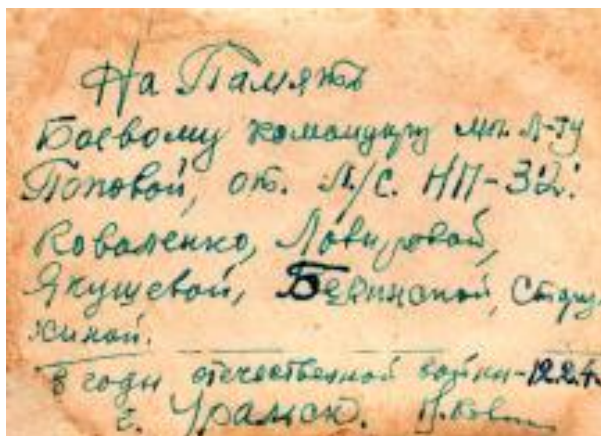 На Память
Боевому командиру мл. Л-ту
Поповой, от. Л/С. НП-32:
Коваленко,
Якушевой, Белинской, Стару-
хиной.
в годы отечественной войны-
г. Уральск.